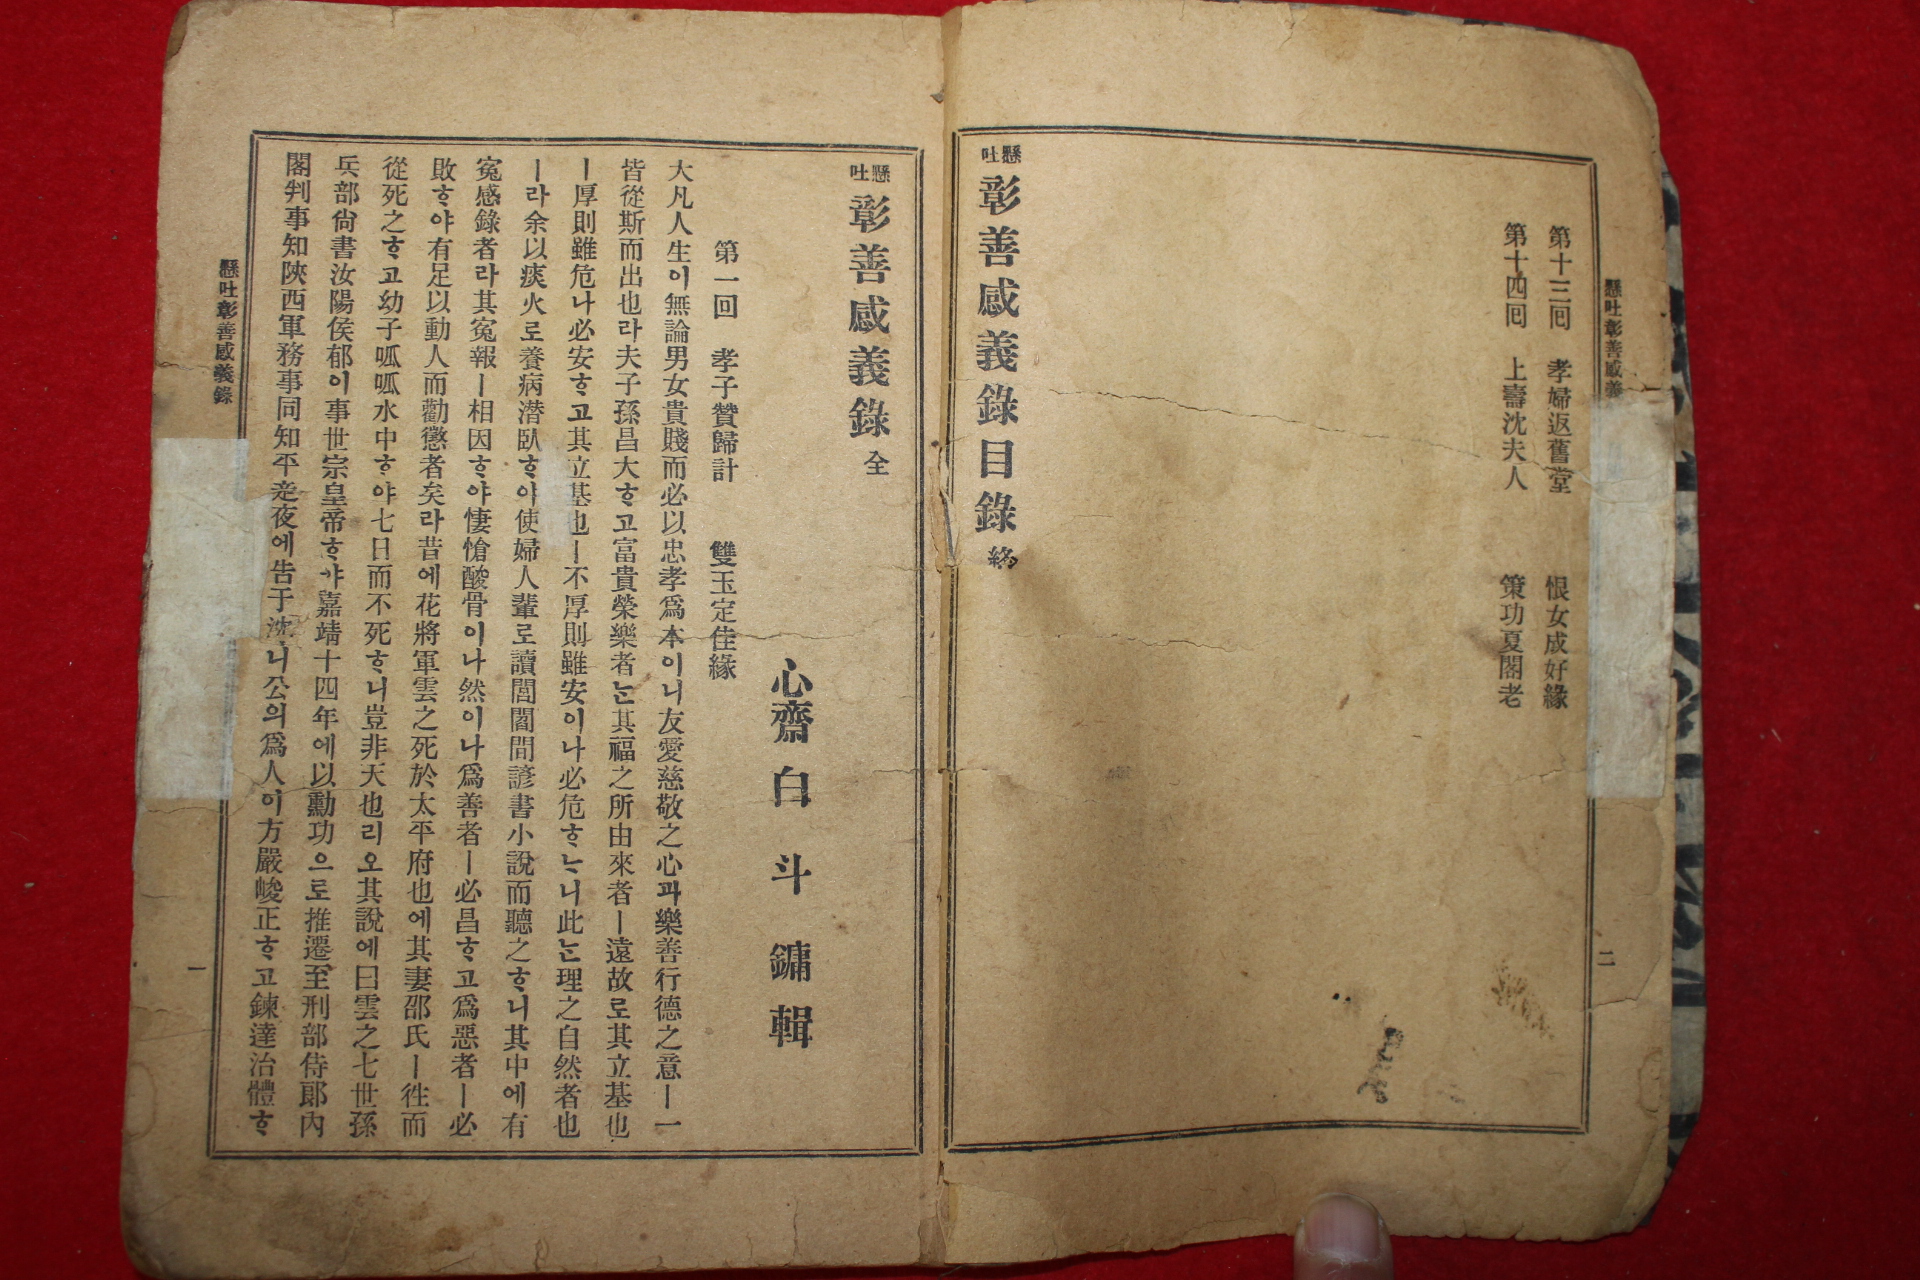 懸吐彰善感義
二
第十三囘 孝婦返舊堂 恨女成好緣
第十四囘 上壽沈夫人 策功夏閣老
懸吐 彰善感義錄目錄 終
懸吐 彰善感義錄 全
心齋 白斗鏞 輯
第一回 孝子贊歸計 雙玉定佳緣
大凡人生이無論男女貴賤而必以忠孝爲本이니友愛慈敬之心과樂善行德之意ㅣ一
皆從斯而出也라夫子孫昌大ᄒᆞ고富貴榮樂者ᄂᆞᆫ其福之所由來者ㅣ遠故로其立基也
ㅣ厚則雖危나必安ᄒᆞ고其立基也ㅣ不厚則雖安이나必危ᄒᆞᄂᆞ니此ᄂᆞᆫ理之自然者也
ㅣ라余以痰火로養病潜臥ᄒᆞ야使婦人輩로讀閭閻間諺書小說而聽之ᄒᆞ니其中에有
寃感錄者라其寃報ㅣ相因ᄒᆞ야悽愴酸骨이나然이나爲善者ㅣ必昌ᄒᆞ고爲惡者ㅣ必
敗ᄒᆞ야有足以動人而勸懲者矣라昔에花將軍雲之死於太平府也에其妻邵氏ㅣ徃而
從死之ᄒᆞ고幼子呱呱水中ᄒᆞ야七日而不死ᄒᆞ니豈非天也리오其說에曰雲之七世孫
兵部尙書汝陽侯郁이事世宗皇帝ᄒᆞ야嘉靖十四年에以勳功으로推遷至刑部侍郞內
閣判事知陝西軍務事同知平 夜에告于沈 니公의爲人이方嚴峻正ᄒᆞ고鍊達治體ᄒᆞ
懸吐彰善感義錄
一